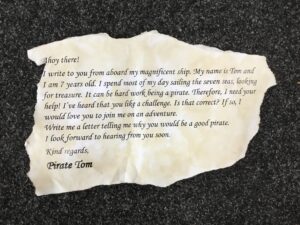 Ahoy there!
I write to you from aboard my magnificent ship. My name is Tom and
I am 7 years old. I spend most of my day sailing the seven seas, looking
for treasure. It can be hard work being a pirate. Therefore, I need your
help! I've heard that you like a challenge. Is that correct? If so, I
would love you to join me on an adventure.
Write me a letter telling me why you would be a good pirate.
I look forward to hearing from you soon.
Kind regards,
Pirate Tom